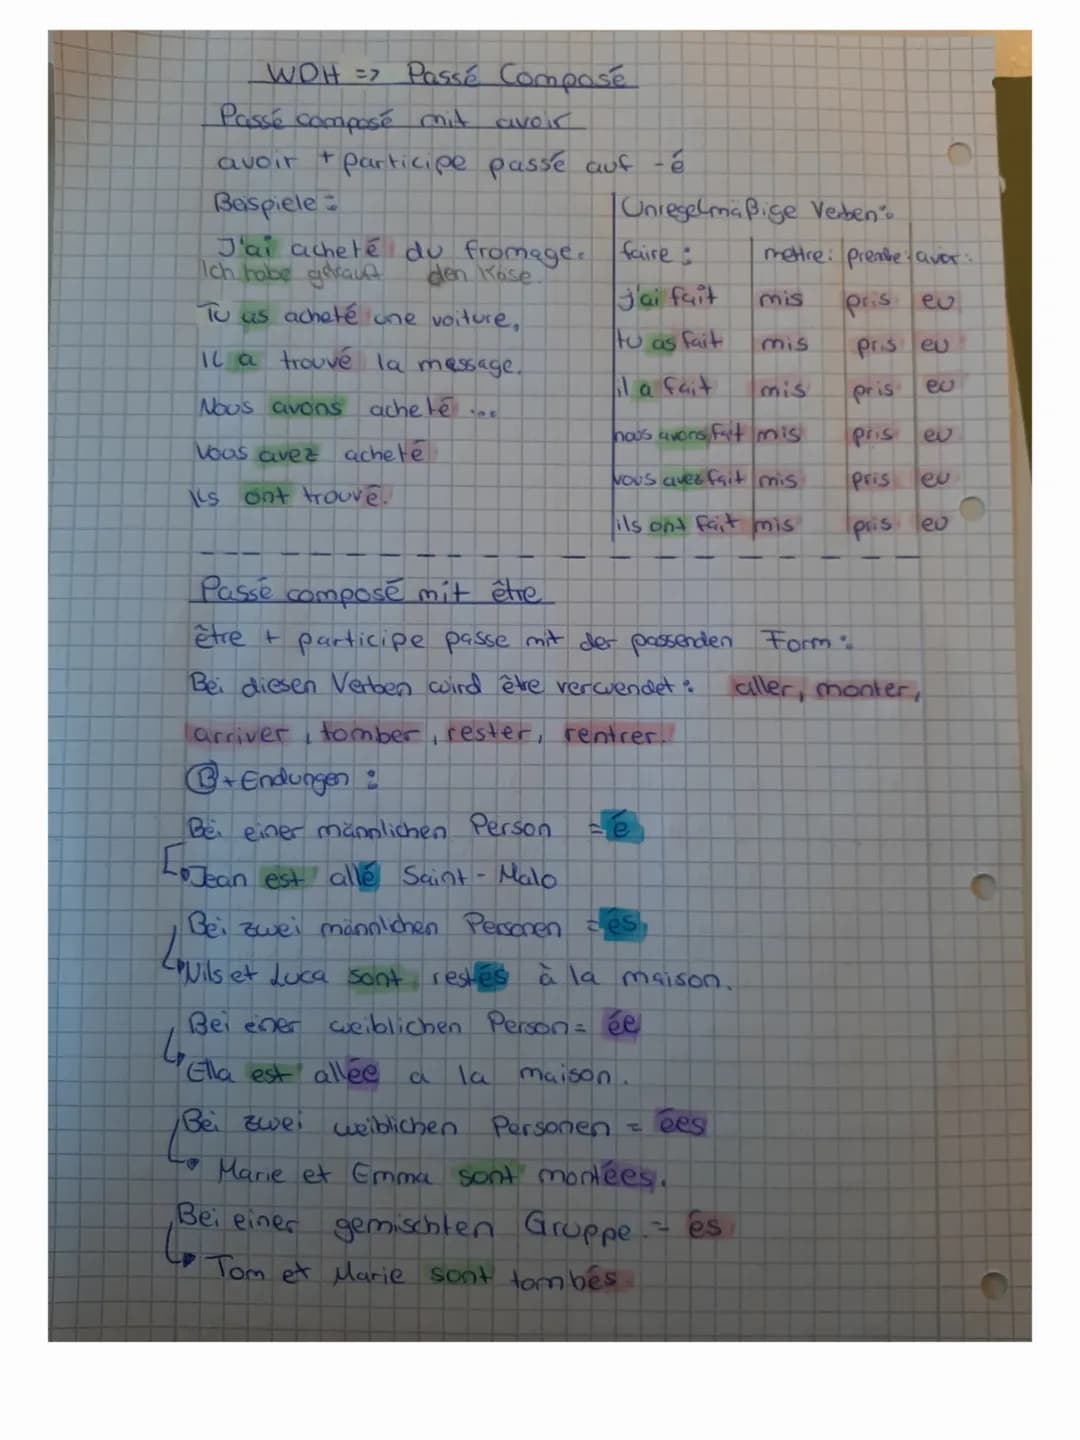 WDH => Passé Composé
Passé composé mit avoir
avoir + participe passé auf -é
Beispiele:
J'ai acheté du fromage.
Ich habe gekauft den Käse.
Tu as acheté une voiture.
Il a trouvé la message.
Nous avons acheté ...
Vous avez acheté
Ils ont trouvé.
Unregelmäßige Verben:
faire: mettre: prendre: avoir:
j'ai fait mis pris eu
tu as fait mis pris eu
il a fait mis pris eu
nous avons fait mis pris eu
vous avez fait mis pris eu
ils ont fait mis pris eu
Passé composé mit être
être + participe passe mit der passenden Form:
Bei diesen Verben wird être verwendet: aller, monter,
arriver, tomber, rester, rentrer.
+ Endungen:
Bei einer männlichen Person = é
Jean est allé Saint-Malo
Bei zwei männlchen Personen = és
Nils et Luca sont restés à la maison.
Bei einer weiblichen Person = ée
Ella est allée a la maison.
Bei zwei weiblichen Personen = ées
Marie et Emma sont montées.
Bei einer gemischten Gruppe = és
Tom et Marie sont tombés